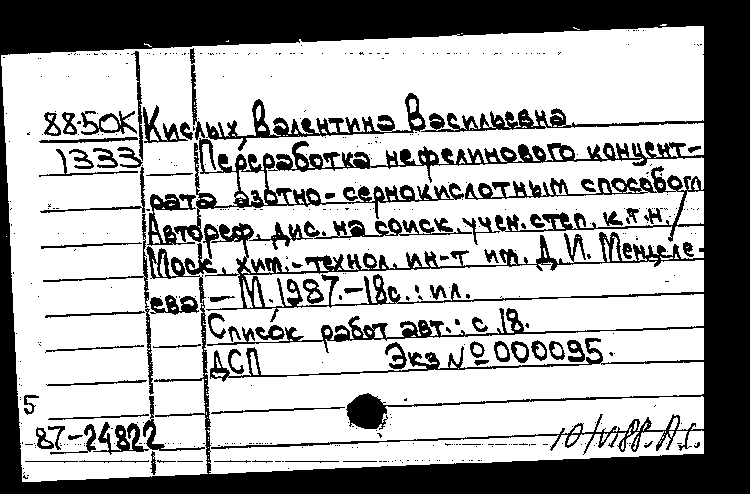 88-50К Кислых, Валентина Васильевна.
1333 Переработка нефелинового концент-
рата азотно-сернокислотным способом
Автореф. дис. на соиск. учен. степ. к.т.н. /
Моск. хим.-технол. ин-т им. Д. И. Менделе-
ева - М. 1987. - 18с. : ил.
Список работ авт.: с. 18.
ДСП Экз № 000095.
5
87-24822